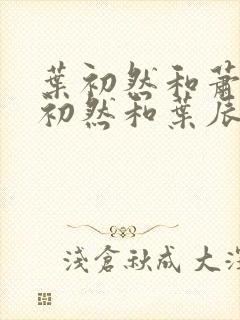 葉初然和蕭
初然和葉辰
淺倉秋成 大深